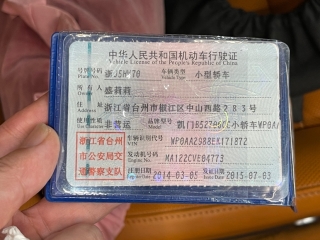 中华人民共和国机动车行驶证
Vehicle License of the People's Republic of China
号牌号码 浙J5 70 车辆类型 小型轿车
Plate No. Vehicle Type
所有人 盛莉莉
Owner
住址 浙江省台州市椒江区中山西路283号
Address
使用性质 非营运 品牌型号 小轿车WP0AA
Use Character Model
浙江省台
州市公安局交
通警察支队
车辆识别代号
VIN
发动机号码
Engine No.
注册日期 2014-03-05 发证日期 2015-07-03
Register Date Issue Date